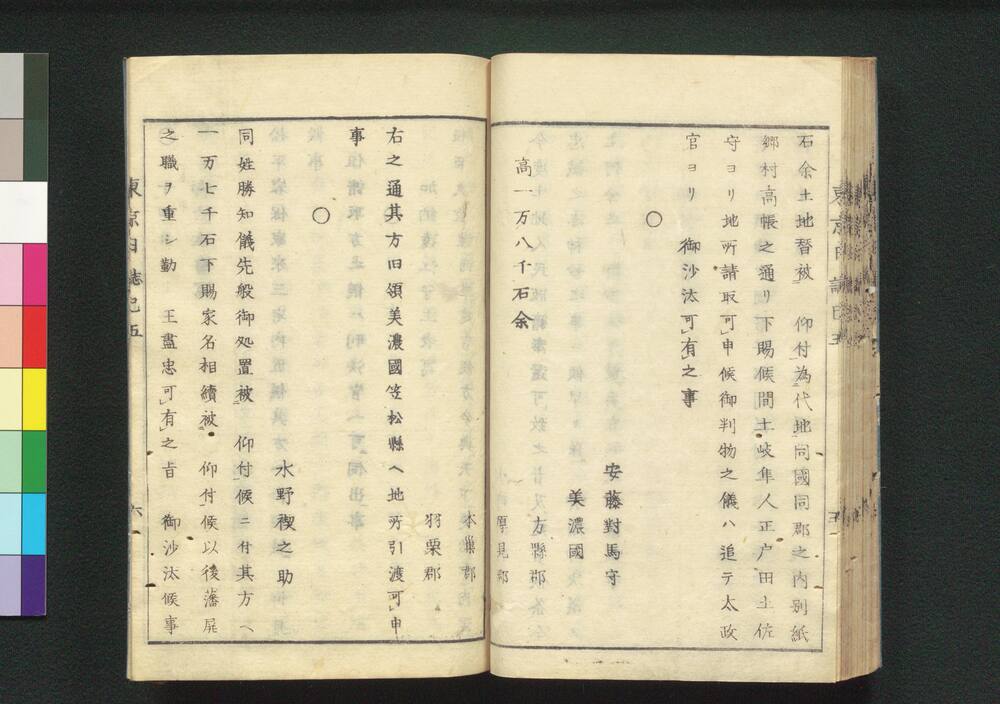 石余土地替被　仰付為代地同國同郡之内別紙
郷村高帳之通リ下賜候間土岐隼人正戸田土佐
守ヨリ地所請取可申候御判物之儀ハ追テ太政
官ヨリ　御沙汰可有之事
〇
安藤對馬守
高一万八千石余
美濃國
方縣郡
厚見郡
本巣郡
羽栗郡
右之通其方旧領美濃國笠松縣ヘ地所引渡可申
事
〇
水野禊之助
同姓勝知儀先般御処置被　仰付候ニ付其方ヘ
一万七千石下賜家名相續被　仰付候以後藩屏
之職ヲ重シ勤　王盡忠可有之旨　御沙汰候事
東京日誌己五
六